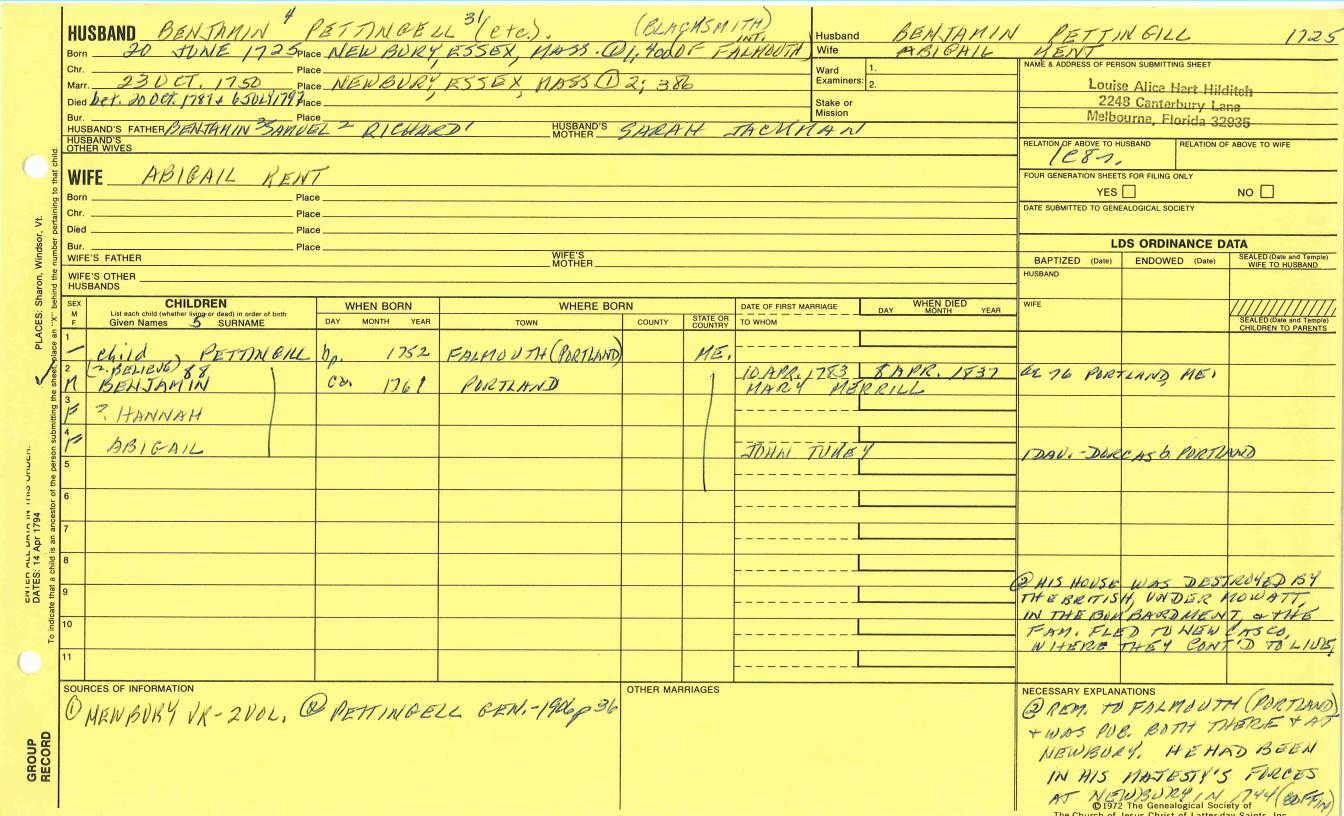 HUSBAND BENJAMIN 4 PETTINGELL 31 (etc.) (BLACKSMITH)
Born 20 JUNE 1725 Place NEWBURY, ESSEX, MASS. ① 1, 400 INT. OF FALMOUTH)
Chr. Place
Marr. 23 OCT. 1750 Place NEWBURY, ESSEX, MASS ① 2; 386
Died bet. 20 OCT. 1789 + 6 JULY 1797 Place
Bur. Place
HUSBAND'S FATHER BENJAMIN 3 SAMUEL 2 RICHARD 1 HUSBAND'S MOTHER SARAH JACKMAN
HUSBAND'S OTHER WIVES
Husband BENJAMIN PETTINGILL 1725
Wife ABIGAIL KENT
Ward Examiners: 1.
2.
Stake or Mission
NAME & ADDRESS OF PERSON SUBMITTING SHEET
Louise Alice Hart Hilditch
2248 Canterbury Lane
Melbourne, Florida 32935
RELATION OF ABOVE TO HUSBAND RELATION OF ABOVE TO WIFE
1C8r.
FOUR GENERATION SHEETS FOR FILING ONLY
YES NO
DATE SUBMITTED TO GENEALOGICAL SOCIETY
WIFE ABIGAIL KENT
Born Place
Chr. Place
Died Place
Bur. Place
WIFE'S FATHER WIFE'S MOTHER
WIFE'S OTHER HUSBANDS
LDS ORDINANCE DATA
BAPTIZED (Date) ENDOWED (Date) SEALED (Date and Temple) WIFE TO HUSBAND
HUSBAND
WIFE
SEALED (Date and Temple) CHILDREN TO PARENTS
SEX M F
CHILDREN
List each child (whether living or dead) in order of birth
Given Names 5 SURNAME
WHEN BORN
DAY MONTH YEAR
WHERE BORN
TOWN COUNTY STATE OR COUNTRY
DATE OF FIRST MARRIAGE
TO WHOM
WHEN DIED
DAY MONTH YEAR
1 - child PETTINGILL bp. 1752 FALMOUTH (PORTLAND) ME.
2 (2. BELIEVE) 88 10 APR. 1783 8 APR. 1837
M BENJAMIN ca. 1761 PORTLAND MARY MERRILL ae 76 PORTLAND, ME.
3 F ? HANNAH
4 F ABIGAIL JOHN TUKEY 1 DAU. - DORCAS b. PORTLAND
5
6
7
8
9
10
11
② HIS HOUSE WAS DESTROYED BY
THE BRITISH, UNDER MOWATT,
IN THE BOMBARDMENT, & THE
FAM. FLED TO NEW CASCO,
WHERE THEY CONT'D TO LIVE.
SOURCES OF INFORMATION
① NEWBURY VR - 2 VOL. ② PETTINGELL GEN. - 1906 p 36
OTHER MARRIAGES
NECESSARY EXPLANATIONS
② REM. TO FALMOUTH (PORTLAND)
+ WAS PUB. BOTH THERE + AT
NEWBURY. HE HAD BEEN
IN HIS MAJESTY'S FORCES
AT NEWBURY IN 1744 (COFFIN)
©1972 The Genealogical Society of
The Church of Jesus Christ of Latter-day Saints, Inc.
GROUP RECORD
ENTER ALL DATA IN THIS ORDER:
DATES: 14 Apr 1794
PLACES: Sharon, Windsor, Vt.
To indicate that a child is an ancestor of the person submitting the sheet, place an "X" behind the number pertaining to that child.